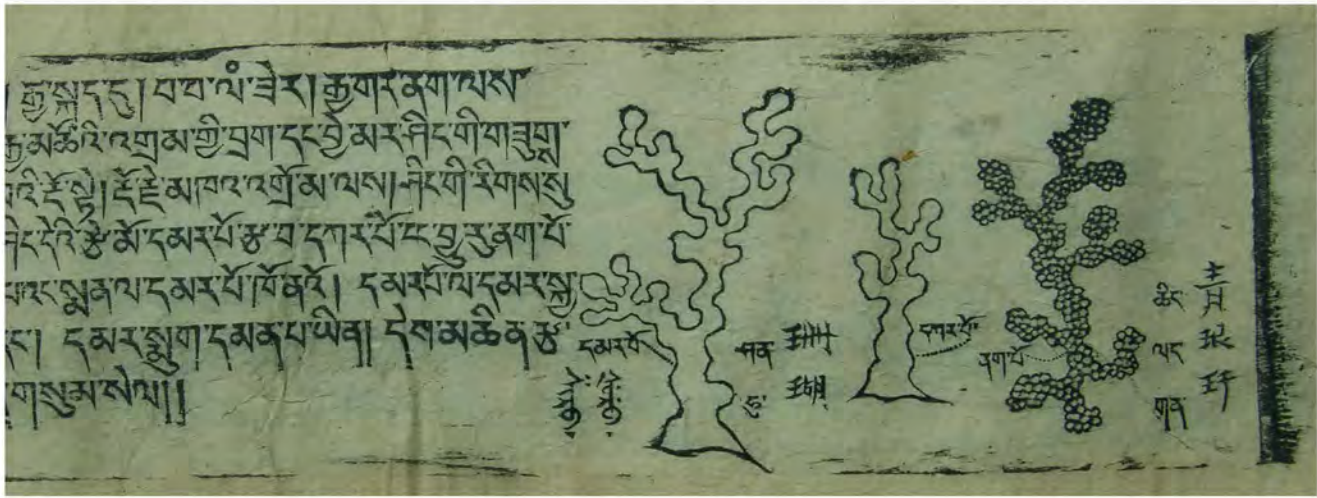 ། རྒྱ་སྐད་དུ། བ་བ་ལཾ་ཟེར། རྒྱ་གར་ནག་ལས་
རྒྱ་མཚོའི་འགྲམ་གྱི་བྲག་དང་བྱེ་མར་ཤིང་གི་གཟུགས་
པའི་རྡོ་སྟེ། རྡོ་རྗེ་མཁའ་འགྲོ་མ་ལས། ཤིང་གི་རིགས་སུ
ཤིང་དེའི་རྩེ་མོ་དམར་པོ་རྩ་བ་དཀར་པོ་ང་བྱུ་རུ་ནག་པོ་
པའང་སྨན་ལ་དམར་པོ་ཁོ་ནའོ། དམར་པོ་ལ་དམར་སྐྱ་
དང་། དམར་སྨུག་དམན་པ་ཡིན། དེས་མཆིན་རྩ་
གསུམ་སེལ།།
དམར་པོ
ཤན་ 珊
ཧུ་ 瑚
དཀར་པོ་
ནག་པོ
ཆིང་ 青
ལང་ 琅
གན་ 玕